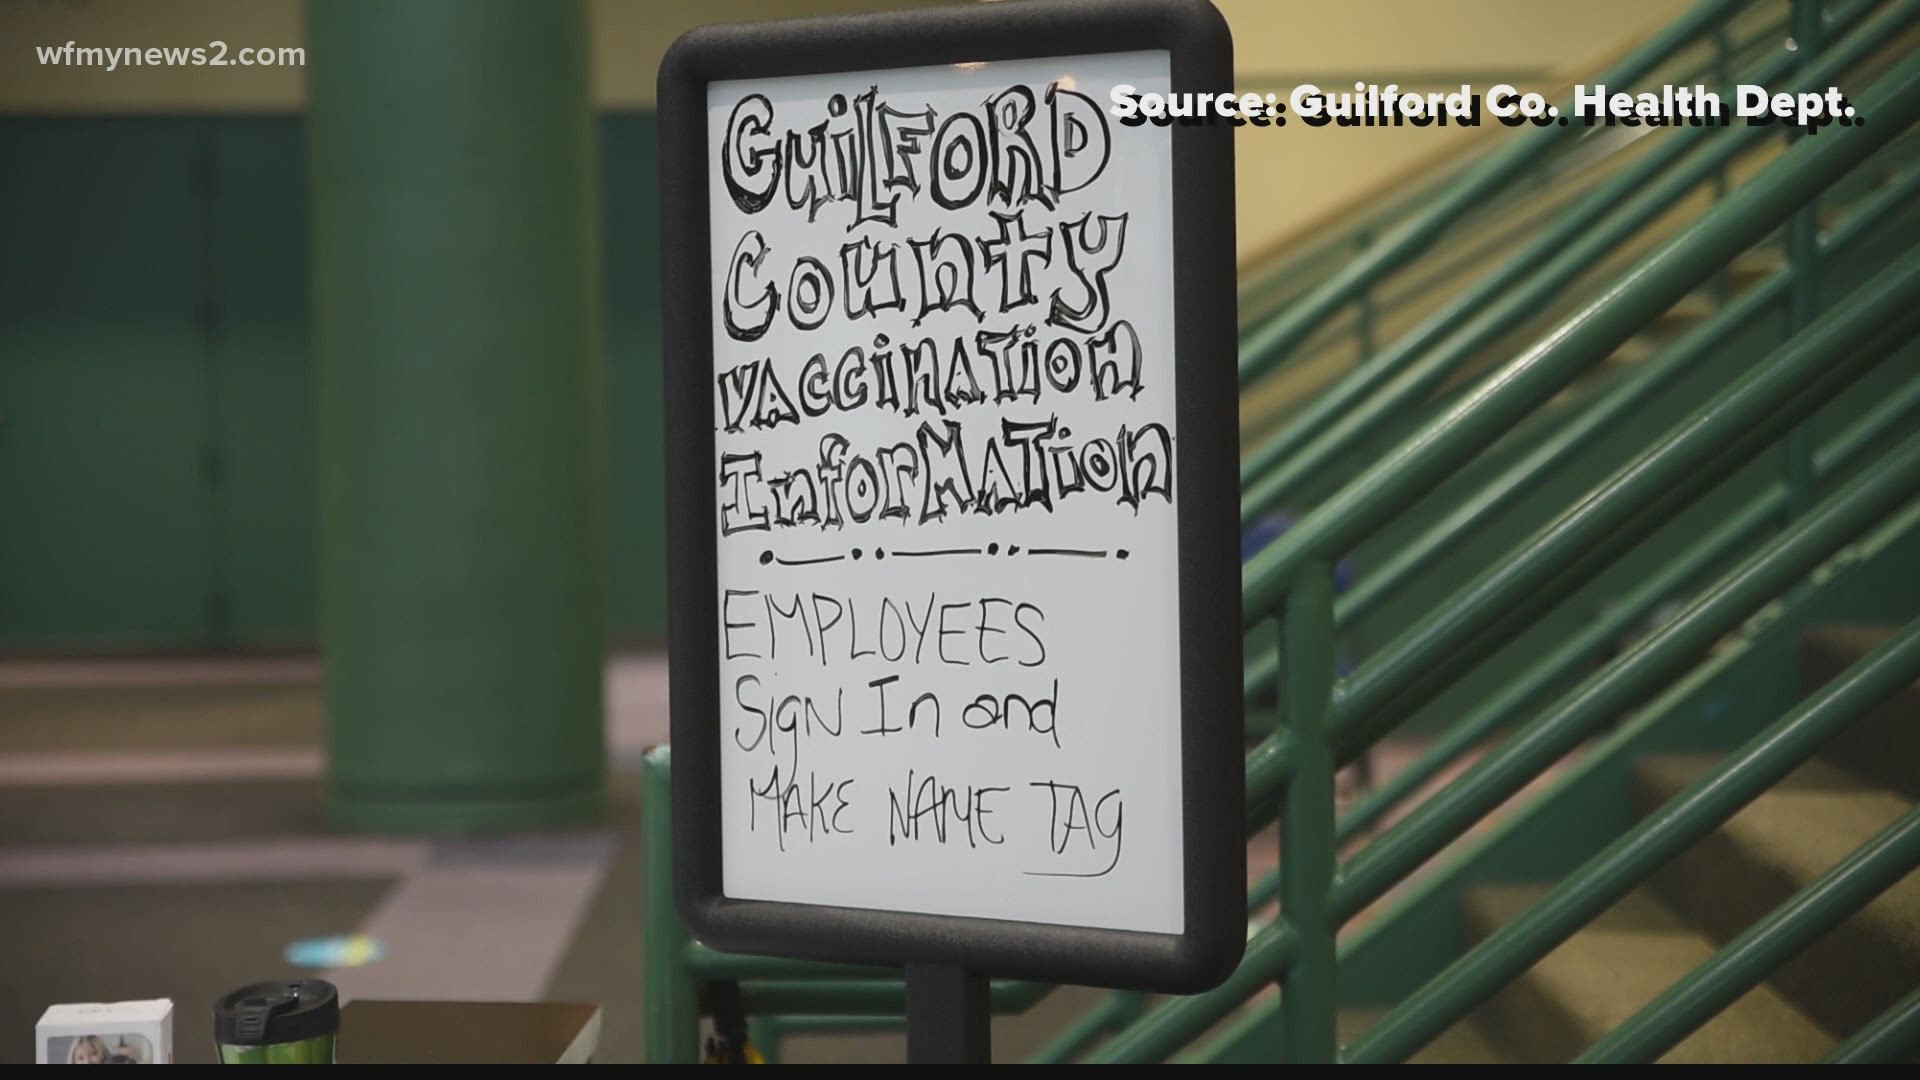 wfmynews2.com
Source: Guilford Co. Health Dept.
GUiLFORD
County
VACCiNATiON
InforMATion
EMPLOYEES
SigN In and
MAKE NAME TAG